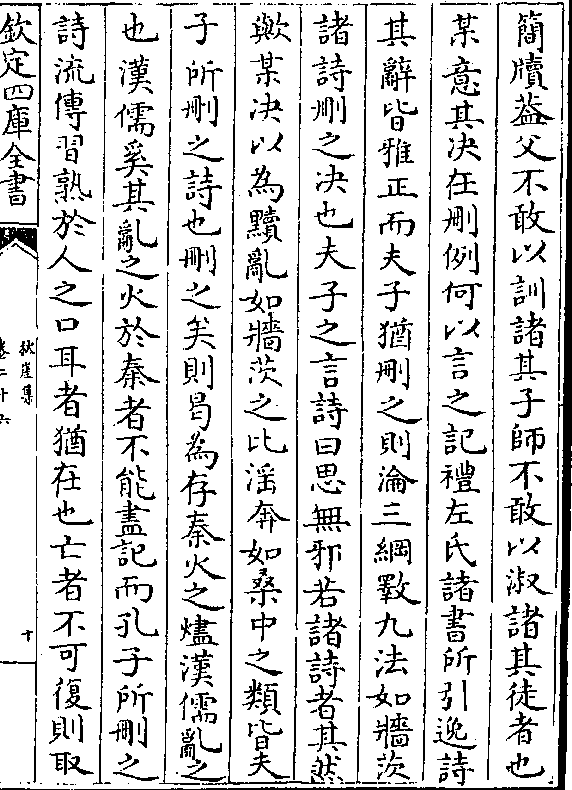 簡牘葢父不敢以訓諸其子師不敢以淑諸其徒者也
某意其决在刪例何以言之記禮左氏諸書所引逸詩
其辭皆雅正而夫子猶刪之則淪三綱斁九法如牆茨
諸詩刪之决也夫子之言詩曰思無邪若諸詩者其然
歟某决以為黷亂如牆茨之比淫奔如桑中之類皆夫
子所刪之詩也刪之矣則曷為存秦火之燼漢儒亂之
也漢儒奚其亂之火於秦者不能盡記而孔子所刪之
詩流傳習熟於人之口耳者猶在也亡者不可復則取
欽定四庫全書
秋崖集
卷三十六
十